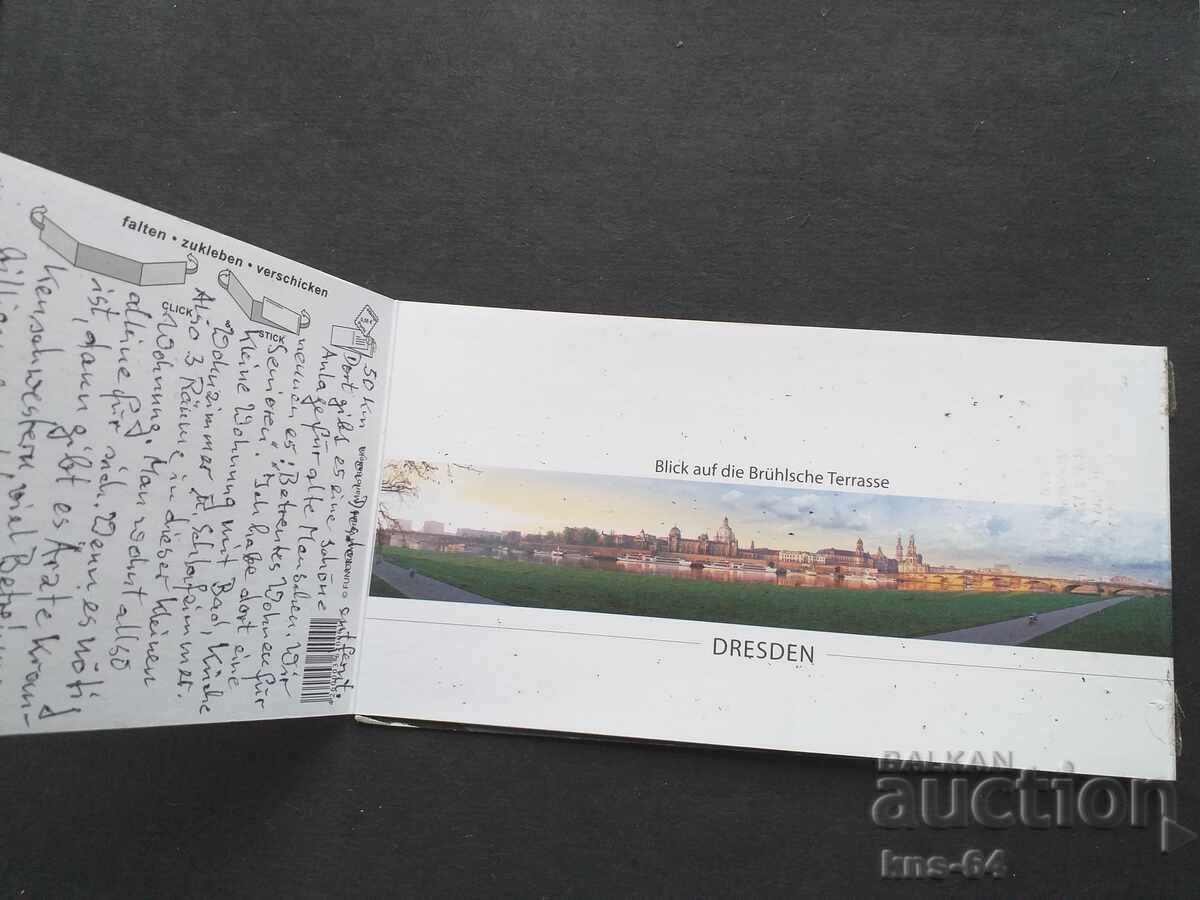 falten • zukleben • verschicken
CLICK
STICK
50 km entfernt.
Dort gibt es eine schöne
Anlage für alte Menschen. Wir
nennen es: „Betreutes Wohnen für
Senioren". Ich habe dort eine
kleine Wohnung mit Bad, Küche
Wohnzimmer u. Schlafzimmer.
Also 3 Räume in dieser kleinen
Wohnung. Man wohnt also
alleine für sich. Wenn es nötig
ist, dann gibt es Ärzte Kran-
kenschwestern, viel
Blick auf die Brühlsche Terrasse
DRESDEN
BALKAN
auction
kns-64